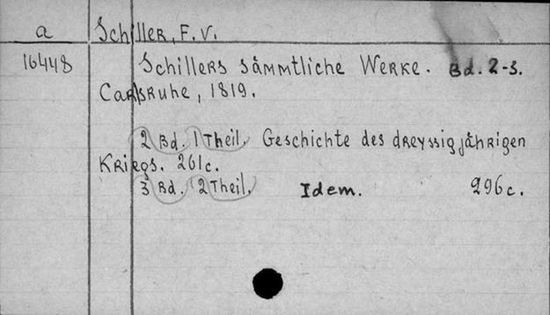 a Schiller, F. V.
16448 Schillers sämmtliche Werke. Bd. 2-3.
Carlsruhe, 1819.
2 Bd. 1 Theil. Geschichte des dreyssigjährigen
Kriegs. 261c.
3 Bd. 2 Theil. Idem. 296c.